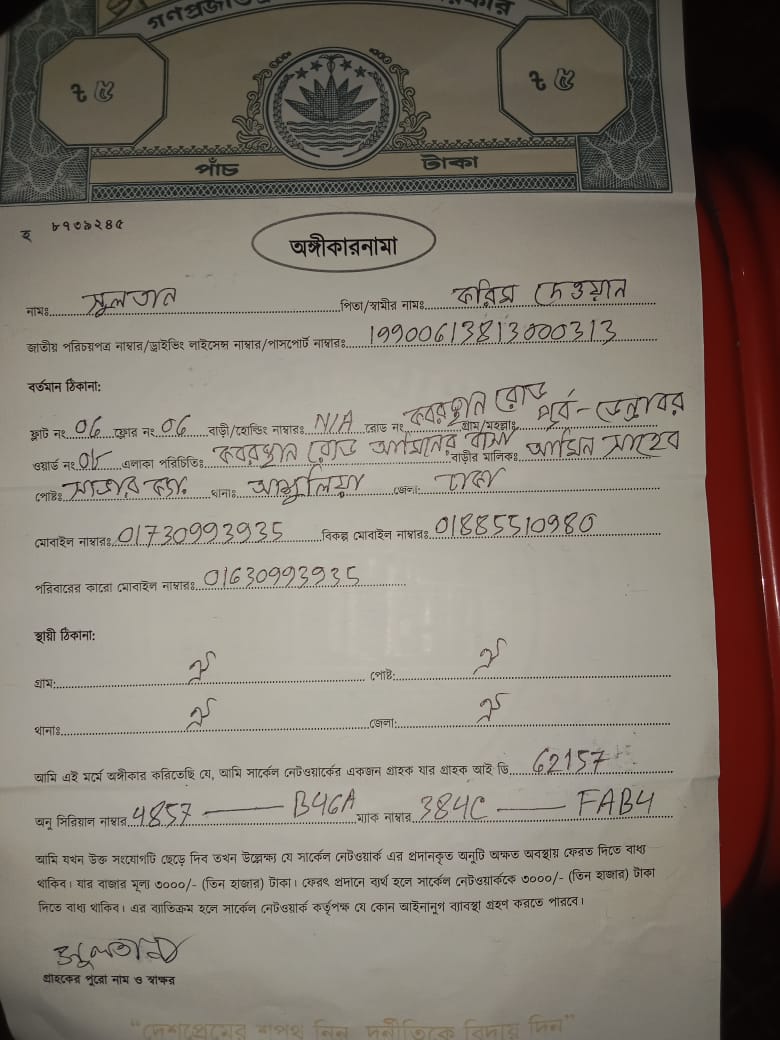 গণপ্রজা
কার
৳ ৫
৳ ৫
পাঁচ টাকা
হ ৮৭৩৯২৪৫
অঙ্গীকারনামা
নামঃ সুলতান পিতা/স্বামীর নামঃ করিম দেওয়ান
জাতীয় পরিচয়পত্র নাম্বার/ড্রাইভিং লাইসেন্স নাম্বার/পাসপোর্ট নাম্বারঃ 19900613813000313
বর্তমান ঠিকানা:
ফ্লাট নং 06 ফ্লোর নং 06 বাড়ী/হোল্ডিং নাম্বারঃ N/A রোড নং কবরস্থান রোড গ্রাম/মহল্লাঃ পূর্ব-ডেন্ডাবর
ওয়ার্ড নং 05 এলাকা পরিচিতিঃ কবরস্থান রোড আমিনের বাসা বাড়ীর মালিকঃ আমিন সাহেব
পোষ্টঃ সাভার ক্যা. থানাঃ আশুলিয়া জেলা: ঢাকা
মোবাইল নাম্বারঃ 01730993935 বিকল্প মোবাইল নাম্বারঃ 01885510980
পরিবারের কারো মোবাইল নাম্বারঃ 01630993935
স্থায়ী ঠিকানা:
গ্রাম: ঐ পোষ্ট: ঐ
থানাঃ ঐ জেলা: ঐ
আমি এই মর্মে অঙ্গীকার করিতেছি যে, আমি সার্কেল নেটওয়ার্কের একজন গ্রাহক যার গ্রাহক আই ডি 62157
অনু সিরিয়াল নাম্বার 4857 — B46A ম্যাক নাম্বার 384C — FAB4
আমি যখন উক্ত সংযোগটি ছেড়ে দিব তখন উল্লেক্ষ্য যে সার্কেল নেটওয়ার্ক এর প্রদানকৃত অনুটি অক্ষত অবস্থায় ফেরত দিতে বাধ্য
থাকিব। যার বাজার মূল্য ৩০০০/- (তিন হাজার) টাকা। ফেরৎ প্রদানে ব্যর্থ হলে সার্কেল নেটওয়ার্ককে ৩০০০/- (তিন হাজার) টাকা
দিতে বাধ্য থাকিব। এর ব্যাতিক্রম হলে সার্কেল নেটওয়ার্ক কর্তৃপক্ষ যে কোন আইনানুগ ব্যাবস্থা গ্রহণ করতে পারবে।
সুলতান
গ্রাহকের পুরো নাম ও স্বাক্ষর
“দেশপ্রেমের শপথ নিন, দুর্নীতিকে বিদায় দিন”